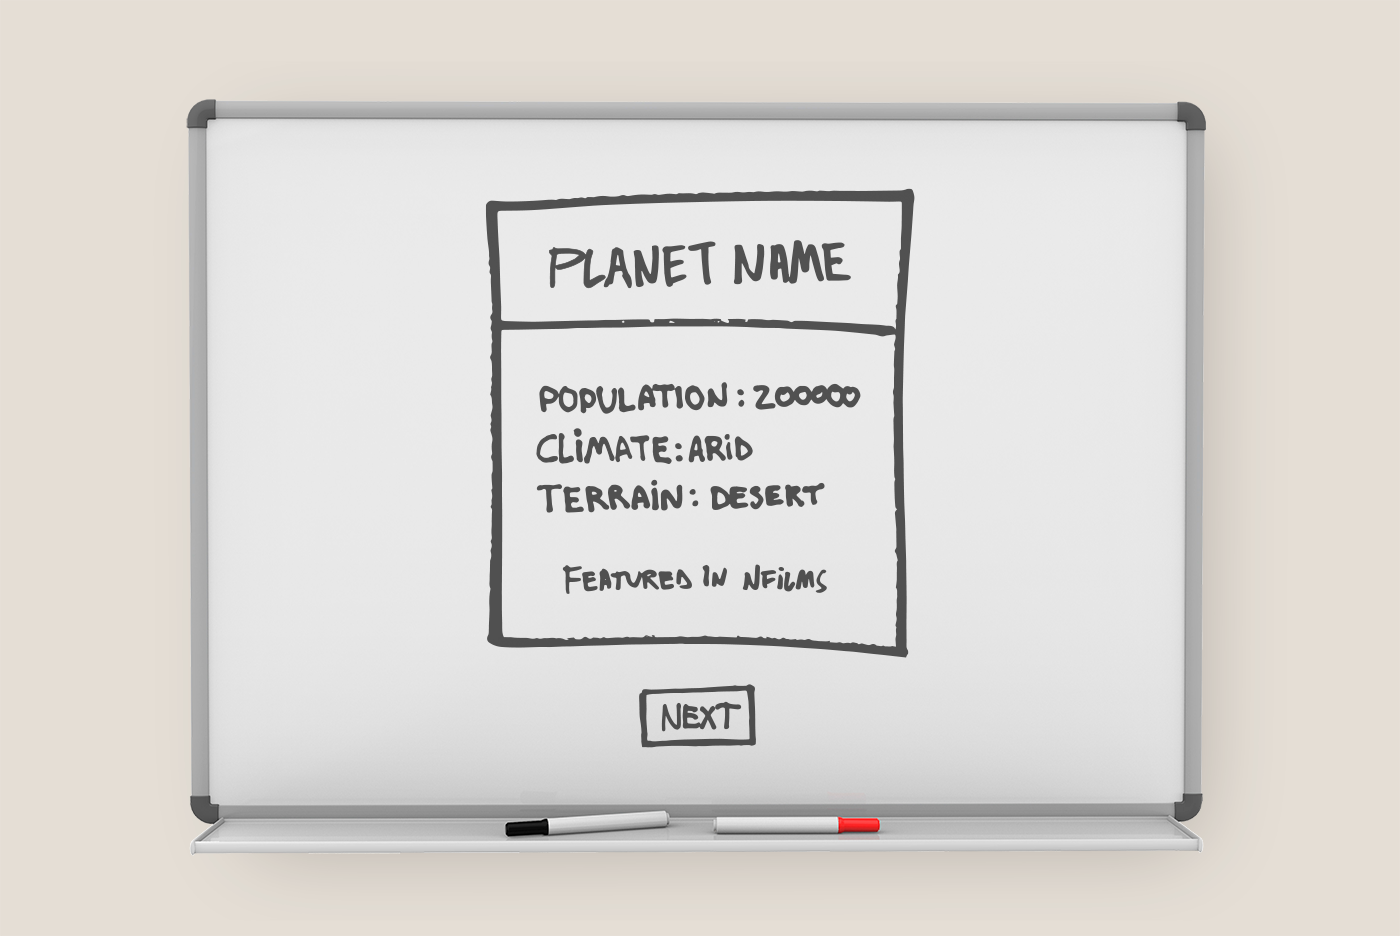 PLANET NAME
POPULATION : 200000
CLiMATE: ARiD
TERRAiN : DESERT
FEATURED IN NFiLMS
NEXT